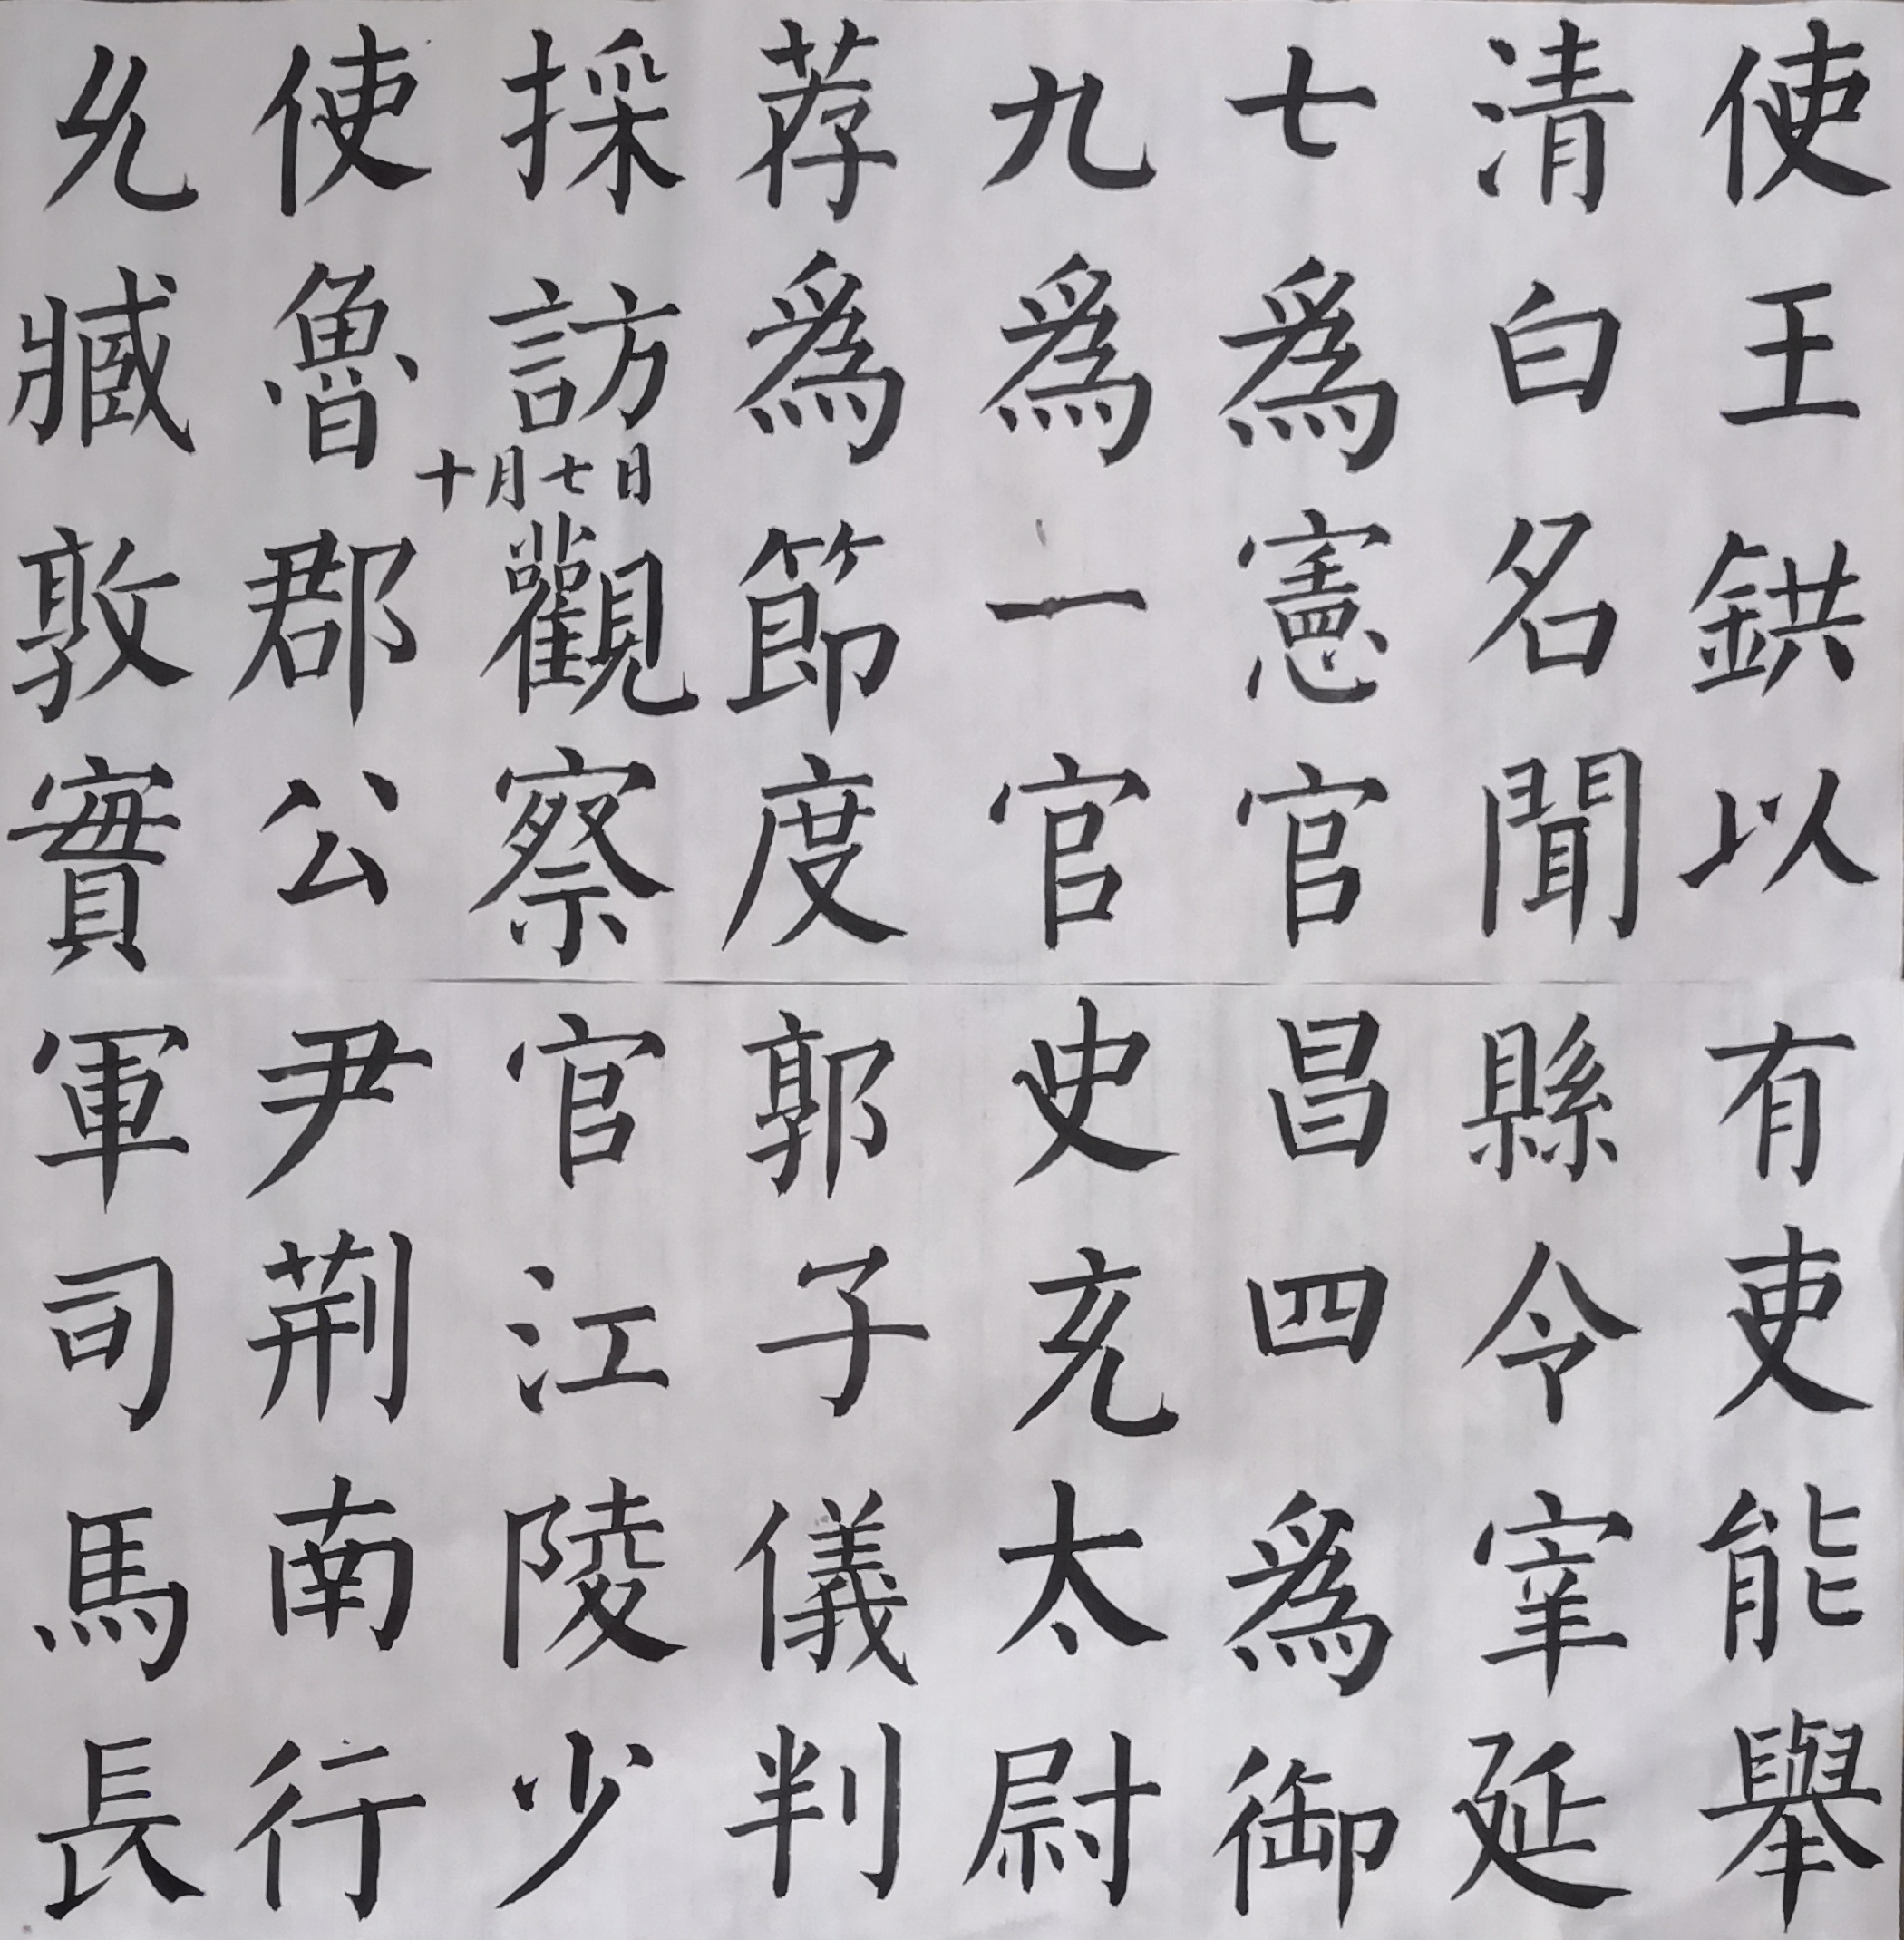 使王鉷以
清白名聞
七爲憲官
九爲一官
荐爲節度
採訪觀察
使魯郡公
允臧敦實
十月七日
有吏能舉
縣令宰延
昌四爲御
史充太尉
郭子儀判
官江陵少
尹荆南行
軍司馬長